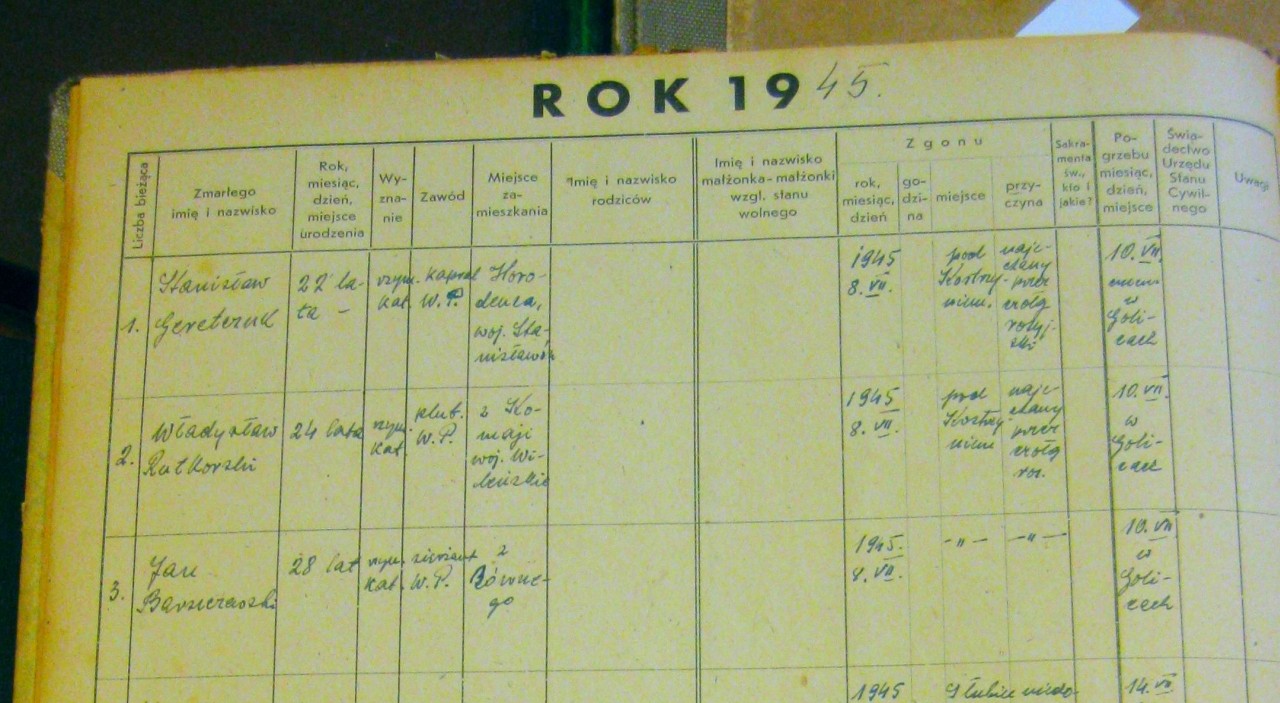 ROK 1945.
Liczba bieżąca
Zmarłego
imię i nazwisko
Rok,
miesiąc,
dzień,
miejsce
urodzenia
Wy-
zna-
nie
Zawód
Miejsce
za-
mieszkania
Imię i nazwisko
rodziców
Imię i nazwisko
małżonka-małżonki
wzgl. stanu
wolnego
Zgonu
rok,
miesiąc,
dzień
go-
dzi-
na
miejsce
przy-
czyna
Sakra-
menta
św.,
kto i
jakie?
Po-
grzebu
miesiąc,
dzień,
miejsce
Świa-
dectwo
Urzędu
Stanu
Cywil-
nego
Uwagi
1.
Stanisław
22 la-
ta -
rzym.
kat.
kapral
W.P.
Horo-
denca,
woj. Sta-
nisławów
1945
8. VII.
pod
Kostrzy-
niem.
naje-
chany
przez
czołg
rosyj-
ski
10. VII.
w
Goli-
cach
2.
Władysław
Rutkowski
24 lata
rzym.
kat.
plut.
W.P.
z Ko-
maji
woj. Wi-
leńskie
1945
8. VII.
pod
Kostrzy-
niem
naje-
chany
przez
czołg
ros.
10. VII.
w
Goli-
cach
3.
Jan
28 lat
rzym.
kat.
sierżant
W.P.
z
Równe-
go
1945.
8. VII.
-„-
-„-
10. VII
w
Goli-
cach
1945
Słubice
14. VII